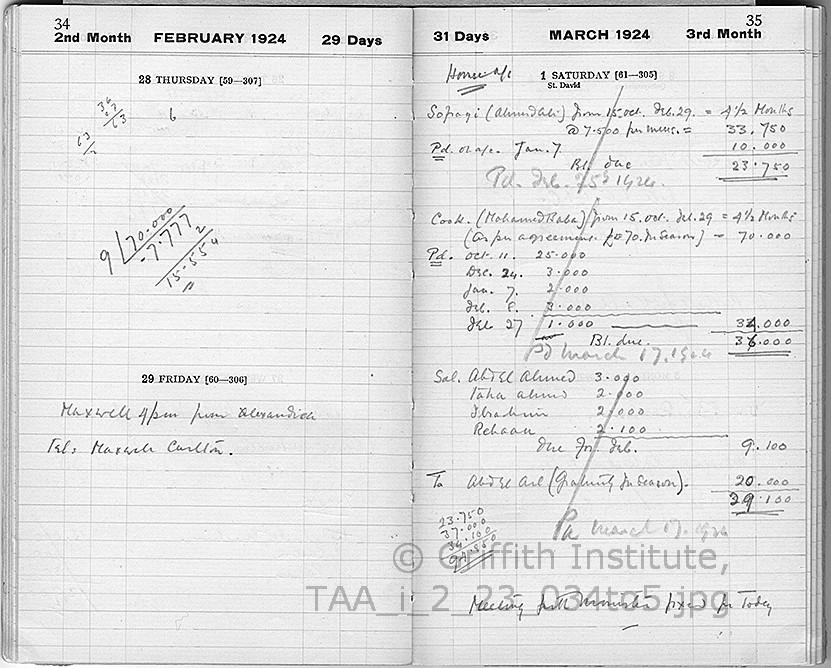 34
2nd Month FEBRUARY 1924 29 Days
28 THURSDAY [59—307]
6
63
9 70.000
7.777
2
15.554
29 FRIDAY [60—306]
Maxwell 4/pm from Alexandria
Tel: Maxwell Carlton.
35
31 Days MARCH 1924 3rd Month
House a/c
1 SATURDAY [61—305]
St. David
(Ahmed Ali) from 15. oct. Feb. 29. = 4 1/2 Months
@ 7.500 per mens. = 33.750
Pd. on a/c. Jan. 7. 10.000
Bl. due 23.750
Pd. Feb. 1924.
Cook. (Mohamed Baba) from 15. oct. Feb. 29 = 4 1/2 Months
(as per agreement £70. In Season) = 70.000
Pd. Oct. 11. 25.000
Dec. 24. 3.000
Jan. 7. 2.000
Feb. 8. 3.000
Feb 27 1.000 34.000
Bl. due. 36.000
Pd March 17. 1924
Sal. Abd El Ahmed 3.000
Taha Ahmed 2.000
Ibrahim 2.000
2.100
due for Feb. 9.100
To Abd El Aal (Gratuity In Season). 20.000
29.100
23.750
37.000
94.850
Pd March 17. 1924
Meeting with Minister fixed for Today
© Griffith Institute,
TAA_i_2_23_034to5.jpg